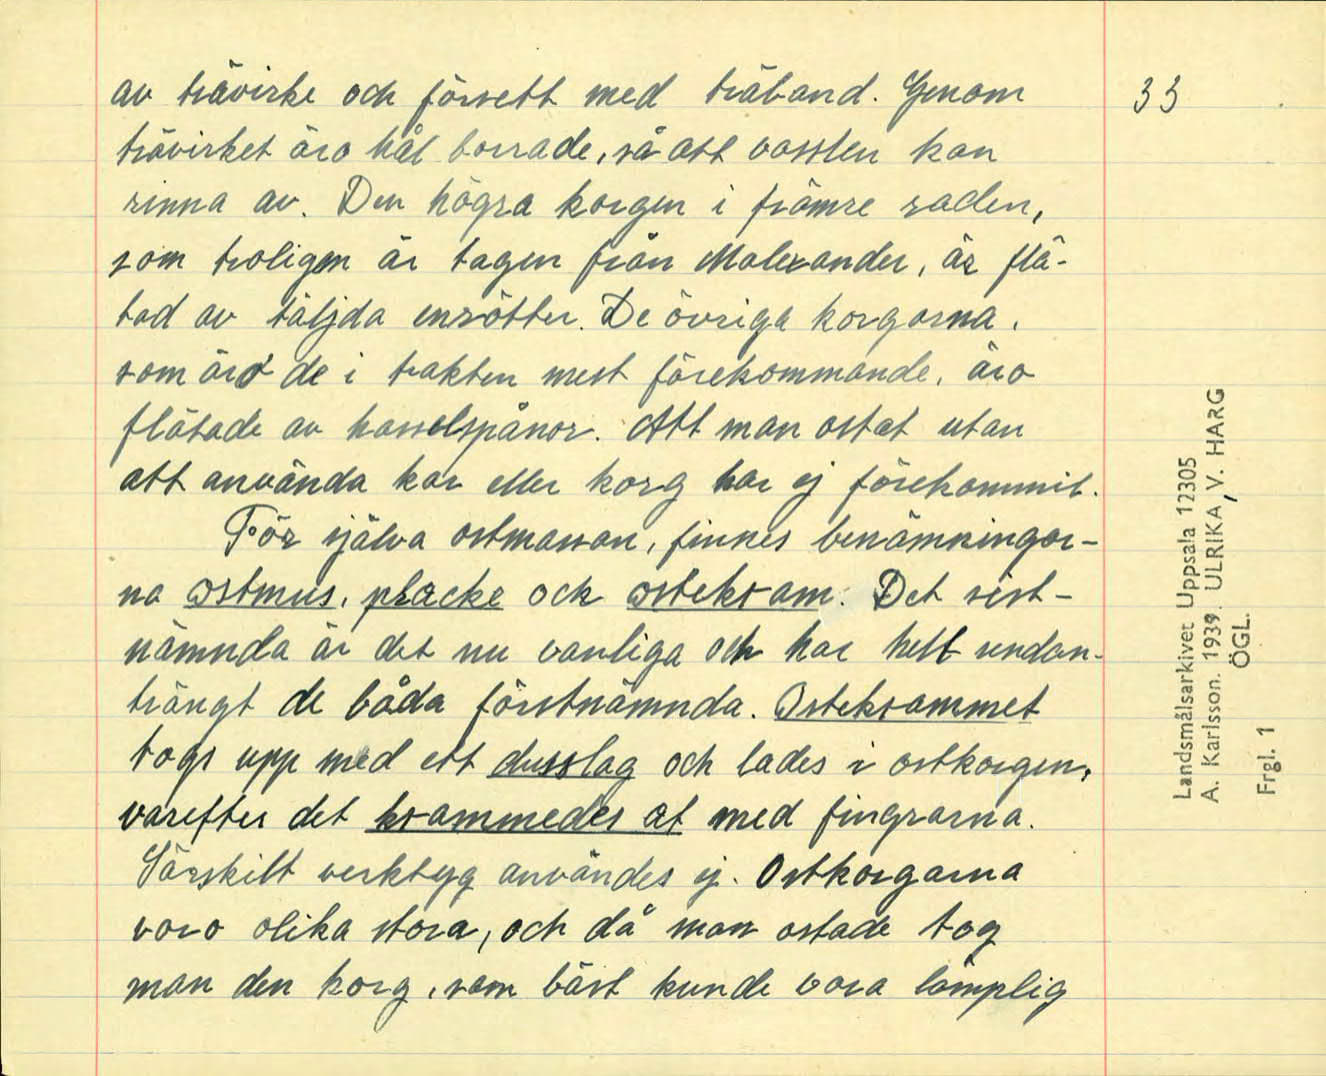 av trävirke och försett med träband. Genom
33
trävirket äro hål borrade, så att vasslen kan
rinna av. Den högra korgen i främre raden,
som troligen är tagen från Malexander, är flä-
tad av täljda enrötter. De övriga korgarna,
som äro de i trakten mest förekommande, äro
flätade av hasselspånor. Att man ostat utan
att använda kar eller korg har ej förekommit.
För själva ostmassan, finnes benämningar-
na ostmus, placke och osteksam. Det sist-
nämnda är det nu vanliga och har helt undan-
trängt de båda förstnämnda. Osteksammet
togs upp med ett dusslag och lades i ostkorgen,
varefter det krammedes at med fingrarna.
Särskilt verktyg användes ej. Ostkorgarna
voro olika stora, och då man ostade tog
man den korg, som bäst kunde vara lämplig
Landsmålsarkivet Uppsala 12305
A. Karlsson. 1939. ULRIKA, V. HARG
ÖGL.
Frgl. 1